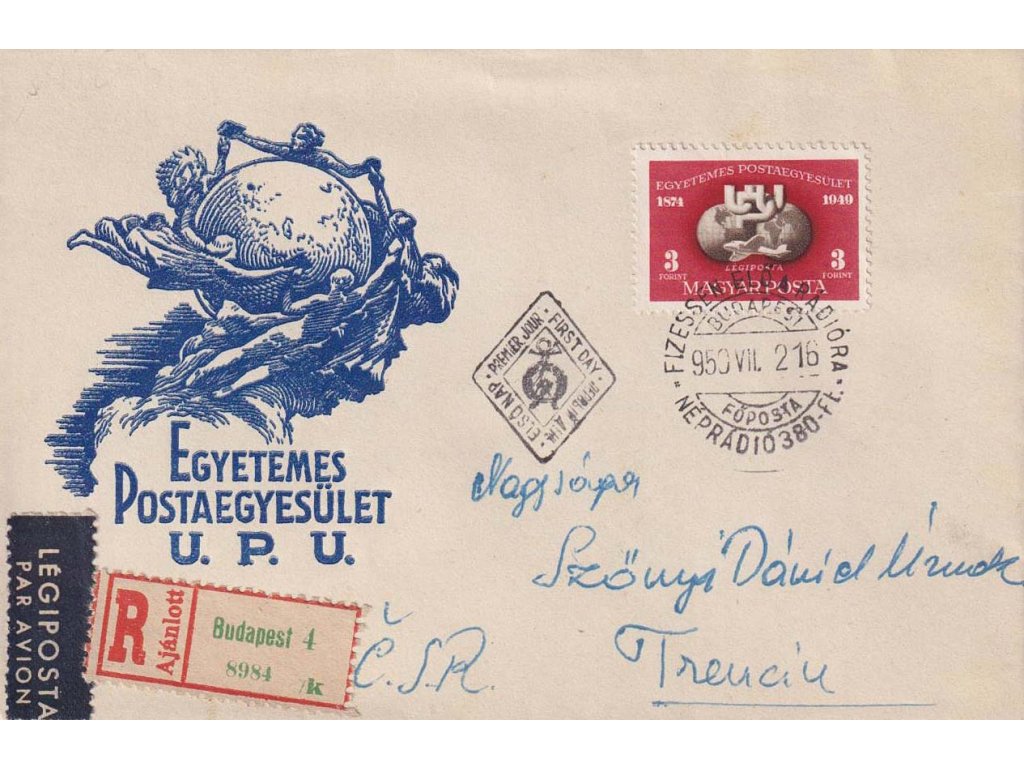 EGYETEMES POSTAEGYESÜLET
1874 1949
LÉGIPOSTA
3 FORINT 3 FORINT
MAGYAR POSTA
PREMIER JOUR · FIRST DAY
ELSŐ NAP
FIZESSEN ELŐ A RÁDIÓRA
BUDAPEST
950 VII. 2 16
FŐPOSTA
NÉPRÁDIÓ 380-Ft.
EGYETEMES
POSTAEGYESÜLET
U. P. U.
Nagyságos
Szőnyi Dávid Úrnak
Trencin
Č.S.R.
LÉGIPOSTA
PAR AVION
R Ajánlott
Budapest 4
8984 /k